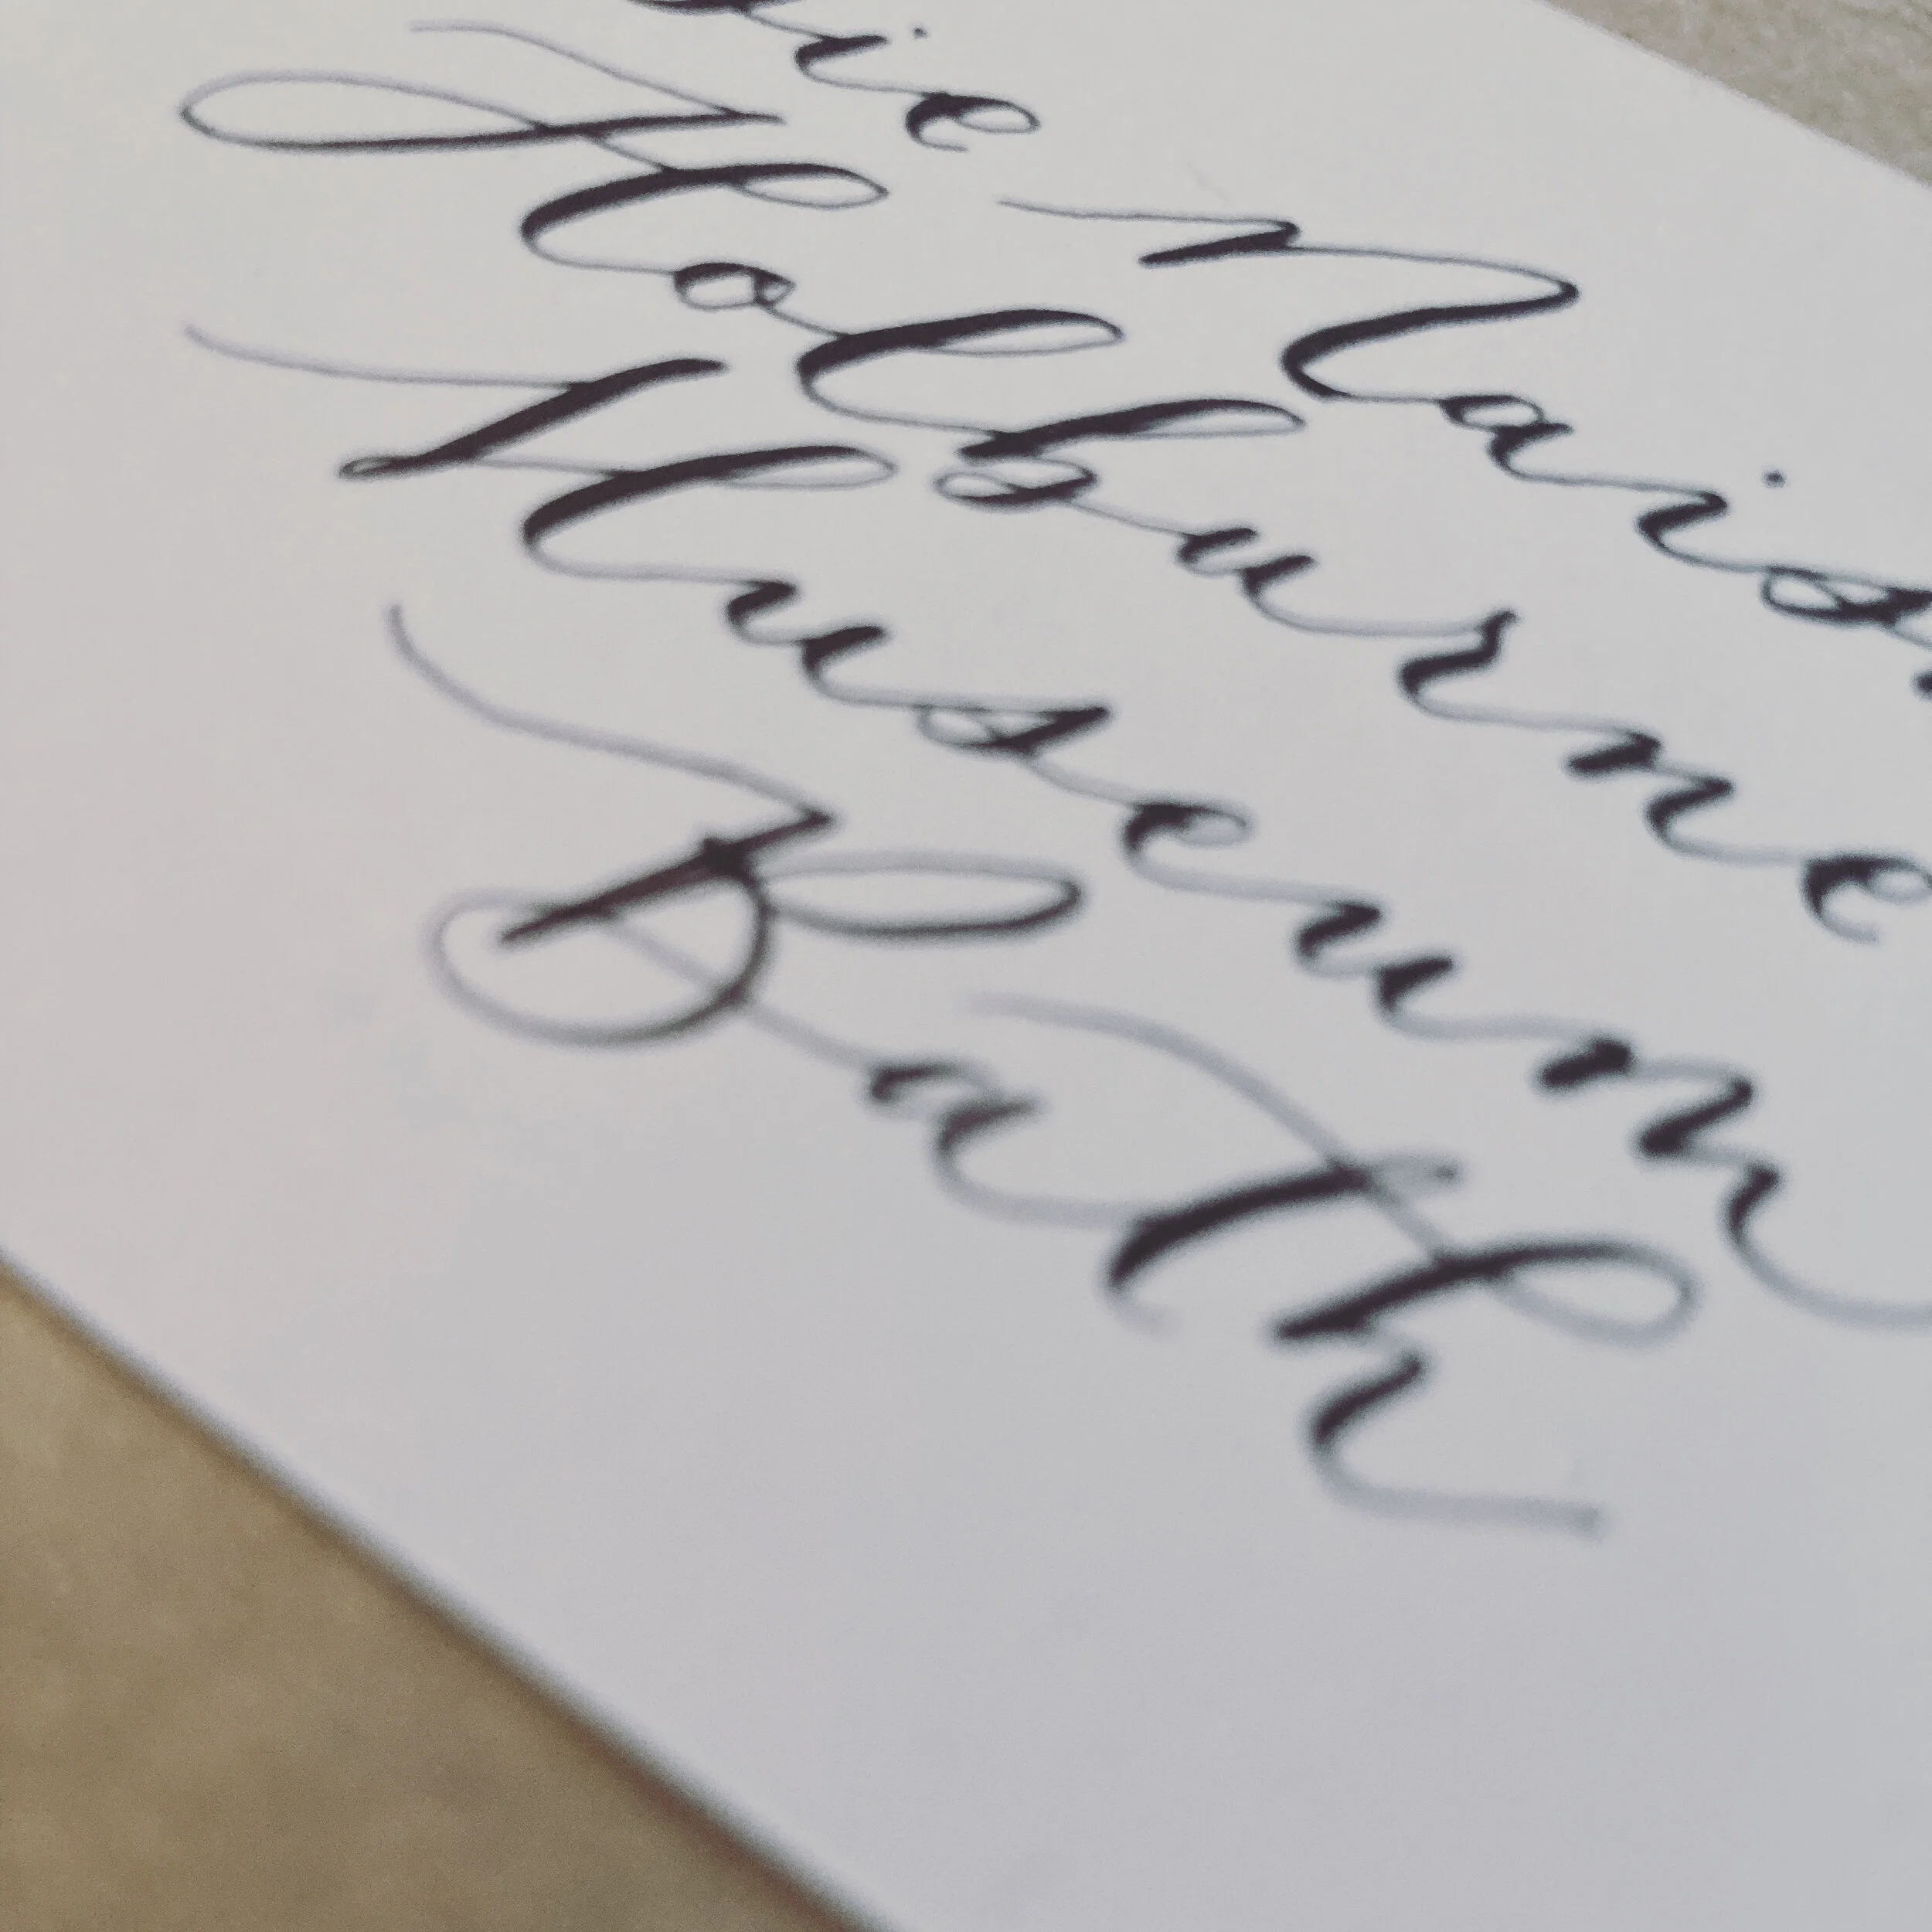 ie Nais
Holburne
Museum
Bath